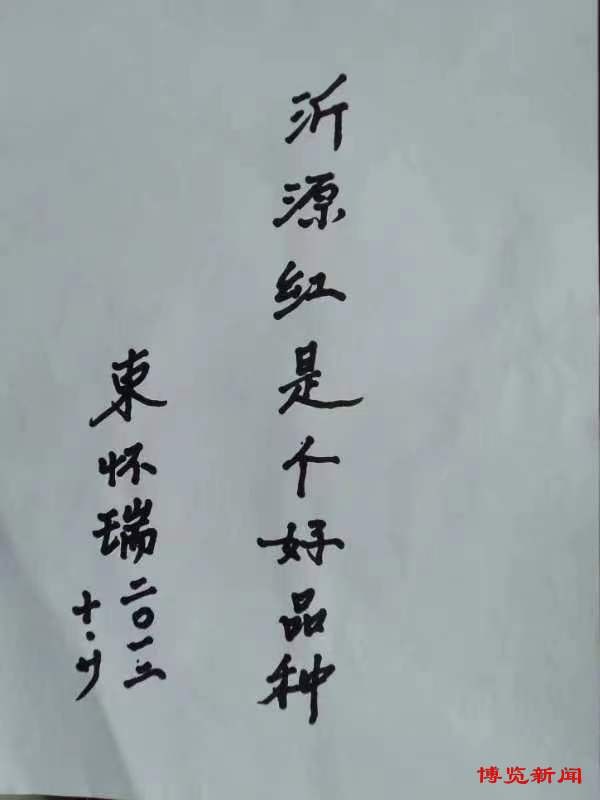 沂源红是个好品种
東怀瑞二〇一三
十·廿
博览新闻